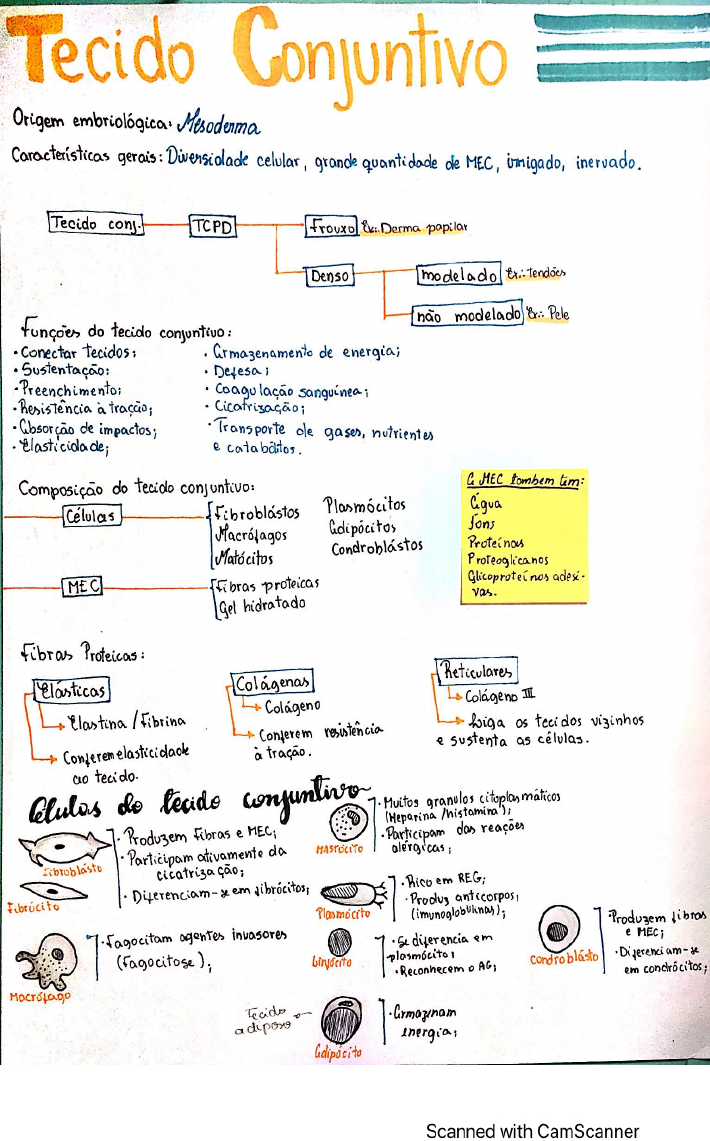 Tecido Conjuntivo
Origem embriológica: Mesoderma
Características gerais: Diversidade celular, grande quantidade de MEC, irrigado, inervado.
Tecido conj. TCPD Frouxo Ex.: Derma papilar
Denso modelado Ex.: Tendões
não modelado Ex.: Pele
Funções do tecido conjuntivo:
· Conectar tecidos;
· Sustentação;
· Preenchimento;
· Resistência à tração;
· Absorção de impactos;
· Elasticidade;
· Armazenamento de energia;
· Defesa;
· Coagulação sanguínea;
· Cicatrização;
· Transporte de gases, nutrientes
e catabólitos.
Composição do tecido conjuntivo:
Células
Fibroblástos
Macrófagos
Matócitos
Plasmócitos
Adipócitos
Condroblástos
MEC
Fibras proteicas
Gel hidratado
A MEC tambem tem:
Água
Íons
Proteínas
Proteoglicanos
Glicoproteínas adesi-
vas.
Fibras Proteicas:
Elásticas
Elastina / Fibrina
Conferem elasticidade
ao tecido.
Colágenas
Colágeno
Conferem resistência
à tração.
Reticulares
Colágeno III
Liga os tecidos vizinhos
e sustenta as células.
Células do tecido conjuntivo
Fibroblásto
Fibrócito
· Produzem fibras e MEC;
· Participam ativamente da
cicatrização;
· Diferenciam-se em fibrócitos;
Mastócito
· Muitos granulos citoplasmáticos
(Heparina / histamina);
· Participam das reações
alérgicas;
Plasmócito
· Rico em REG;
· Produz anticorpos;
(imunoglobulinas);
Macrófago
· Fagocitam agentes invasores
(Fagocitose);
Linfócito
· Se diferencia em
plasmócito;
· Reconhecem o AG;
Condroblásto
· Produzem fibras
e MEC;
· Diferenciam-se
em condrócitos;
Tecido
adiposo
Adipócito
· Armazenam
energia;
Scanned with CamScanner